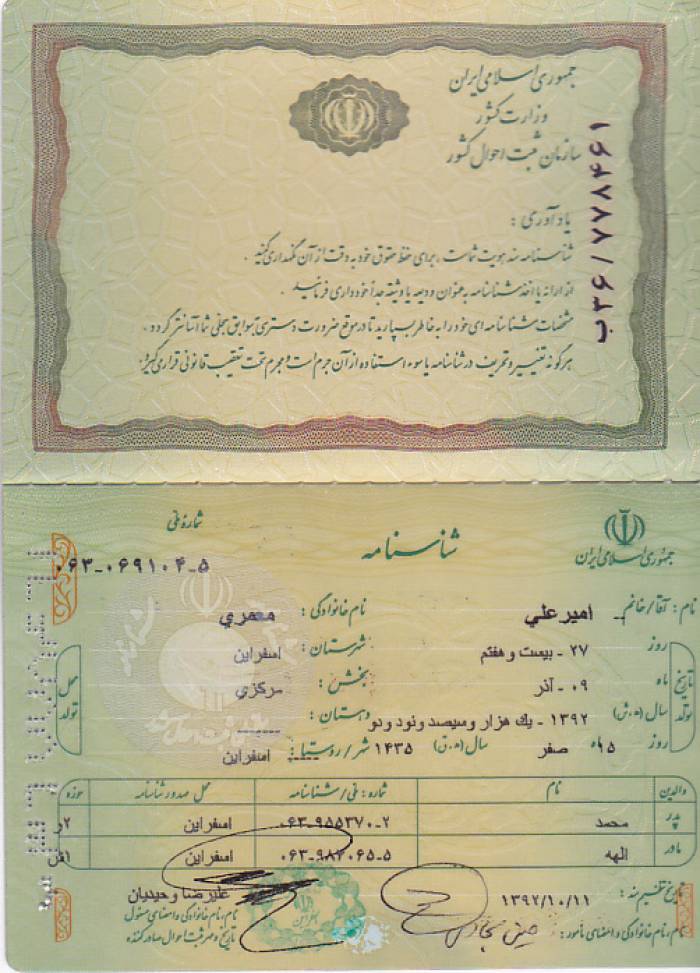 جمهوری اسلامی ایران
وزارت کشور
سازمان ثبت احوال کشور
ب۳۶/۷۷۸۴۶۱
یادآوری :
شناسنامه سند هویت شماست ، برای حفظ حقوق خود به دقت از آن نگهداری کنید .
از ارائه یا اخذ شناسنامه به عنوان ودیعه یا وثیقه جداً خودداری فرمائید .
مشخصات شناسنامه ای خود را به خاطر بسپارید تا در موقع ضرورت دسترسی به سوابق سجلی شما آسانتر گردد .
هرگونه تغییر و تحریف در شناسنامه یا سوء استفاده از آن جرم است و مجرم تحت تعقیب قانونی قرار می گیرد .
جمهوری اسلامی ایران
شناسنامه
شمارهٔ ملی
۰۶۳-۰۶۹۱۰۴-۵
نام : آقا/خانم امیرعلي نام خانوادگی : معمري
تاریخ تولد روز ۲۷ - بیست و هفتم محل تولد شهرستان : اسفراین
ماه ۰۹ - آذر بخش : مرکزي
سال (ه.ش) ۱۳۹۲ - یك هزار و سیصد و نود و دو دهستان : ------
روز ۱۵ ماه صفر سال (ه.ق) ۱۴۳۵ شهر/روستا : اسفراین
والدین نام شماره : ملی/شناسنامه محل صدور شناسنامه حوزه
پدر محمد ۰۶۳-۹۵۵۳۷۰-۲ اسفراین ۲ر
مادر الهه ۰۶۳-۹۸۲۰۶۵-۵ اسفراین ۱ش
تاریخ تنظیم سند : ۱۳۹۲/۱۰/۱۱ علیرضا وحیدیان
نام ، نام خانوادگی و امضای مأمور : نام ، نام خانوادگی و امضای مسئول
تاریخ و مهر ثبت احوال صادرکننده